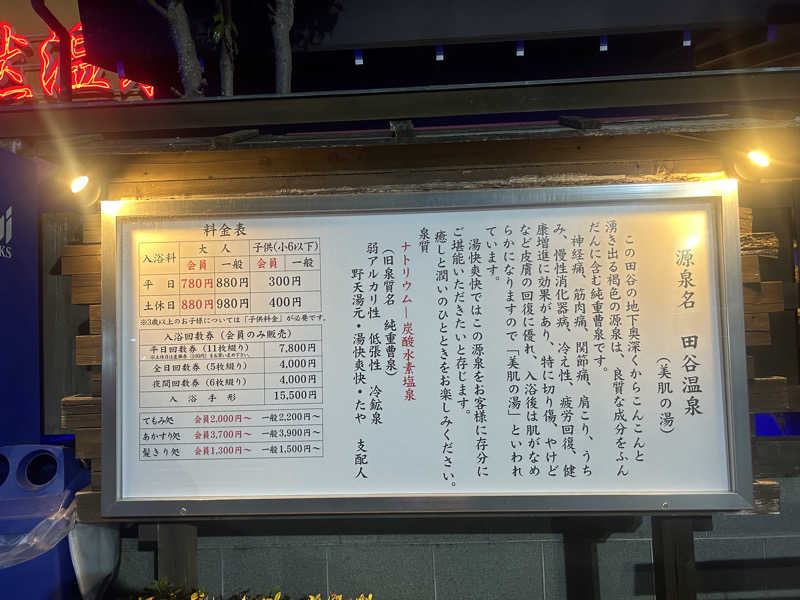 然温
KS
源泉名　田谷温泉
（美肌の湯）
この田谷の地下奥深くからこんこんと
湧き出る褐色の源泉は、良質な成分をふん
だんに含む純重曹泉です。
神経痛、筋肉痛、関節痛、肩こり、うち
み、慢性消化器病、冷え性、疲労回復、健
康増進に効果があり、特に切り傷、やけど
など皮膚の回復に優れ、入浴後は肌がなめ
らかになりますので「美肌の湯」といわれ
ています。
湯快爽快ではこの源泉をお客様に存分に
ご堪能いただきたいと存じます。
癒しと潤いのひとときをお楽しみください。
泉質
ナトリウム―炭酸水素塩泉
（旧泉質名　純重曹泉）
弱アルカリ性　低張性　冷鉱泉
野天湯元・湯快爽快・たや　支配人
料金表
入浴料 大人 子供(小6以下)
会員 一般 会員 一般
平日 780円 880円 300円
土休日 880円 980円 400円
※3歳以上のお子様については「子供料金」が必要です。
入浴回数券（会員のみ販売）
平日回数券（11枚綴り） 7,800円
全日回数券（5枚綴り） 4,000円
夜間回数券（6枚綴り） 4,000円
入浴手形 15,500円
てもみ処 会員2,000円～ 一般2,200円～
あかすり処 会員3,700円～ 一般3,900円～
髪きり処 会員1,300円～ 一般1,500円～